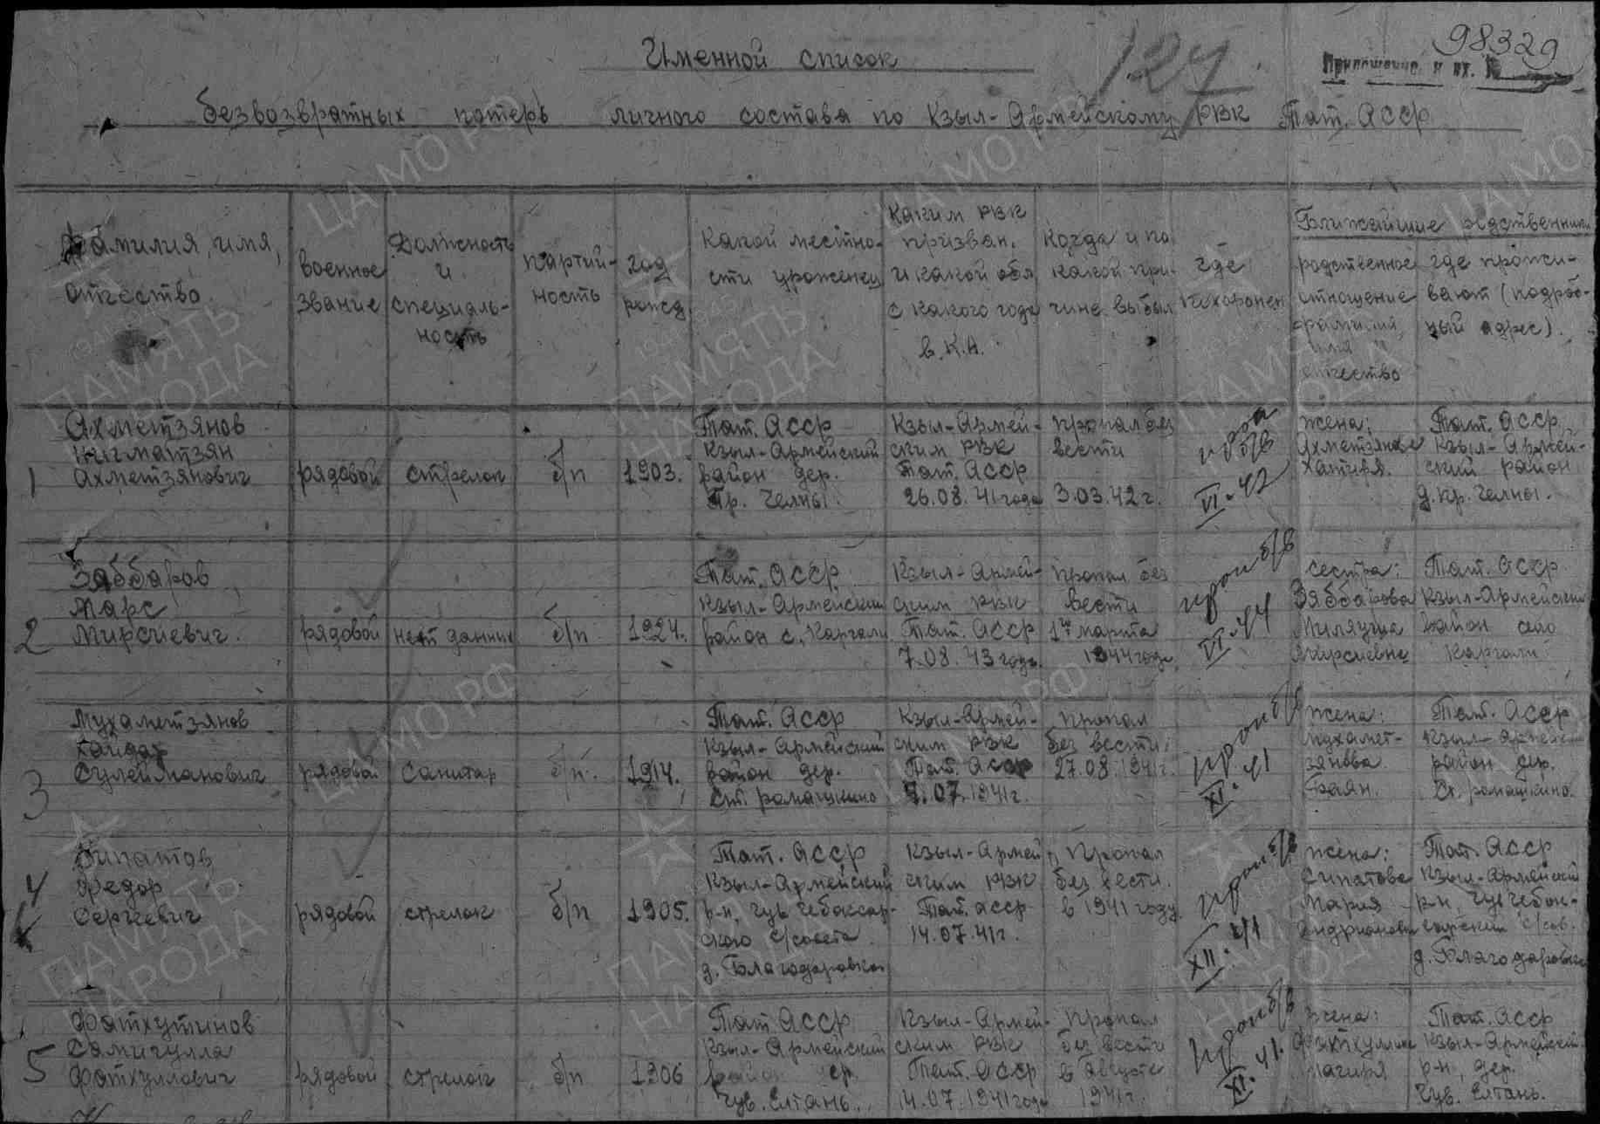 Именной список
127
98329
безвозвратных потерь личного состава по Кзыл-Армейскому РВК Тат. АССР
Фамилия, имя, отчество
военное звание
Должность и специальность
партийность
год рожд
Какой местности уроженец
Каким РВК призван. и какой обл с какого года в К.А.
Когда и по какой причине выбыл
где похоронен
Ближайшие родственники
родственное отношение фамилия имя отчество
где проживают (подробный адрес).
1
Ахметзянов
Нигматзян
Ахметзянович
рядовой
стрелок
б/п
1903.
Тат. АССР
Кзыл-Армейский
район дер.
Пр. Челны.
Кзыл-Армей-
ским РВК
Тат. АССР
26.08.41 года
пропал без
вести
3.03.42 г.
проп
б/в
VI-42
жена:
Хативя.
Тат. АССР
Кзыл-Армей-
ский район
д. пр. Челны.
2
Заббаров
Марс
Мирсиевич.
рядовой
нет данных
б/п
1924.
Тат. АССР
Кзыл-Армейский
район с. Каргали
Кзыл-Армей-
ским РВК
Тат. АССР
7.08.43 года.
пропал без
вести
17 марта
1944 года
проп б/в
VI-44
сестра:
Зяббарова
Миляуша
Мирсиевна
Тат. АССР
Кзыл-Армейский
район село
Каргали
3
Мухаметзянов
Сулейманович
рядовой
санитар
б/п.
1914.
Тат. АССР
Кзыл-Армейский
район дер.
Ст. ромашкино
Кзыл-Армей-
ским РВК
Тат. АССР
7.07.1941г.
пропал
без вести:
27.08.1941г.
проп б/в
XI-41
жена:
Мухамет-
зянова
Баян.
Тат. АССР
Кзыл-Армейский
район дер.
Ст. ромашкино.
4
Сипатов
Федор
Сергеевич
рядовой
стрелок
б/п
1905.
Тат. АССР
Кзыл-Армейский
р-н, Чув Чебоксар-
ского с/совета
д. Благодаровка
Кзыл-Армей
ским РВК
Тат. АССР
14.07.41г.
Пропал
без вести.
в 1941 году
проп б/в
XII-41
жена:
Сипатова
Мария
Андриановна
Тат. АССР
Кзыл-Армейский
р-н, Чув Чебок-
сарский с/сов.
д. Благодаровка
5
Фатхутинов
Самигулла
Фатхуллович
рядовой
стрелок
б/п
1906
Тат АССР
Кзыл-Армейский
район
Чув. Елтань.
Кзыл-Армей-
ским РВК
Тат. АССР
14.07.1941 года
пропал
без вести
в августе
1941г.
проп б/в
XI-41.
жена:
Магиря
Тат. АССР
Кзыл-Армейский
р-н, дер.
Чув. Елтань.
ЦАМО РФ
ПАМЯТЬ
НАРОДА